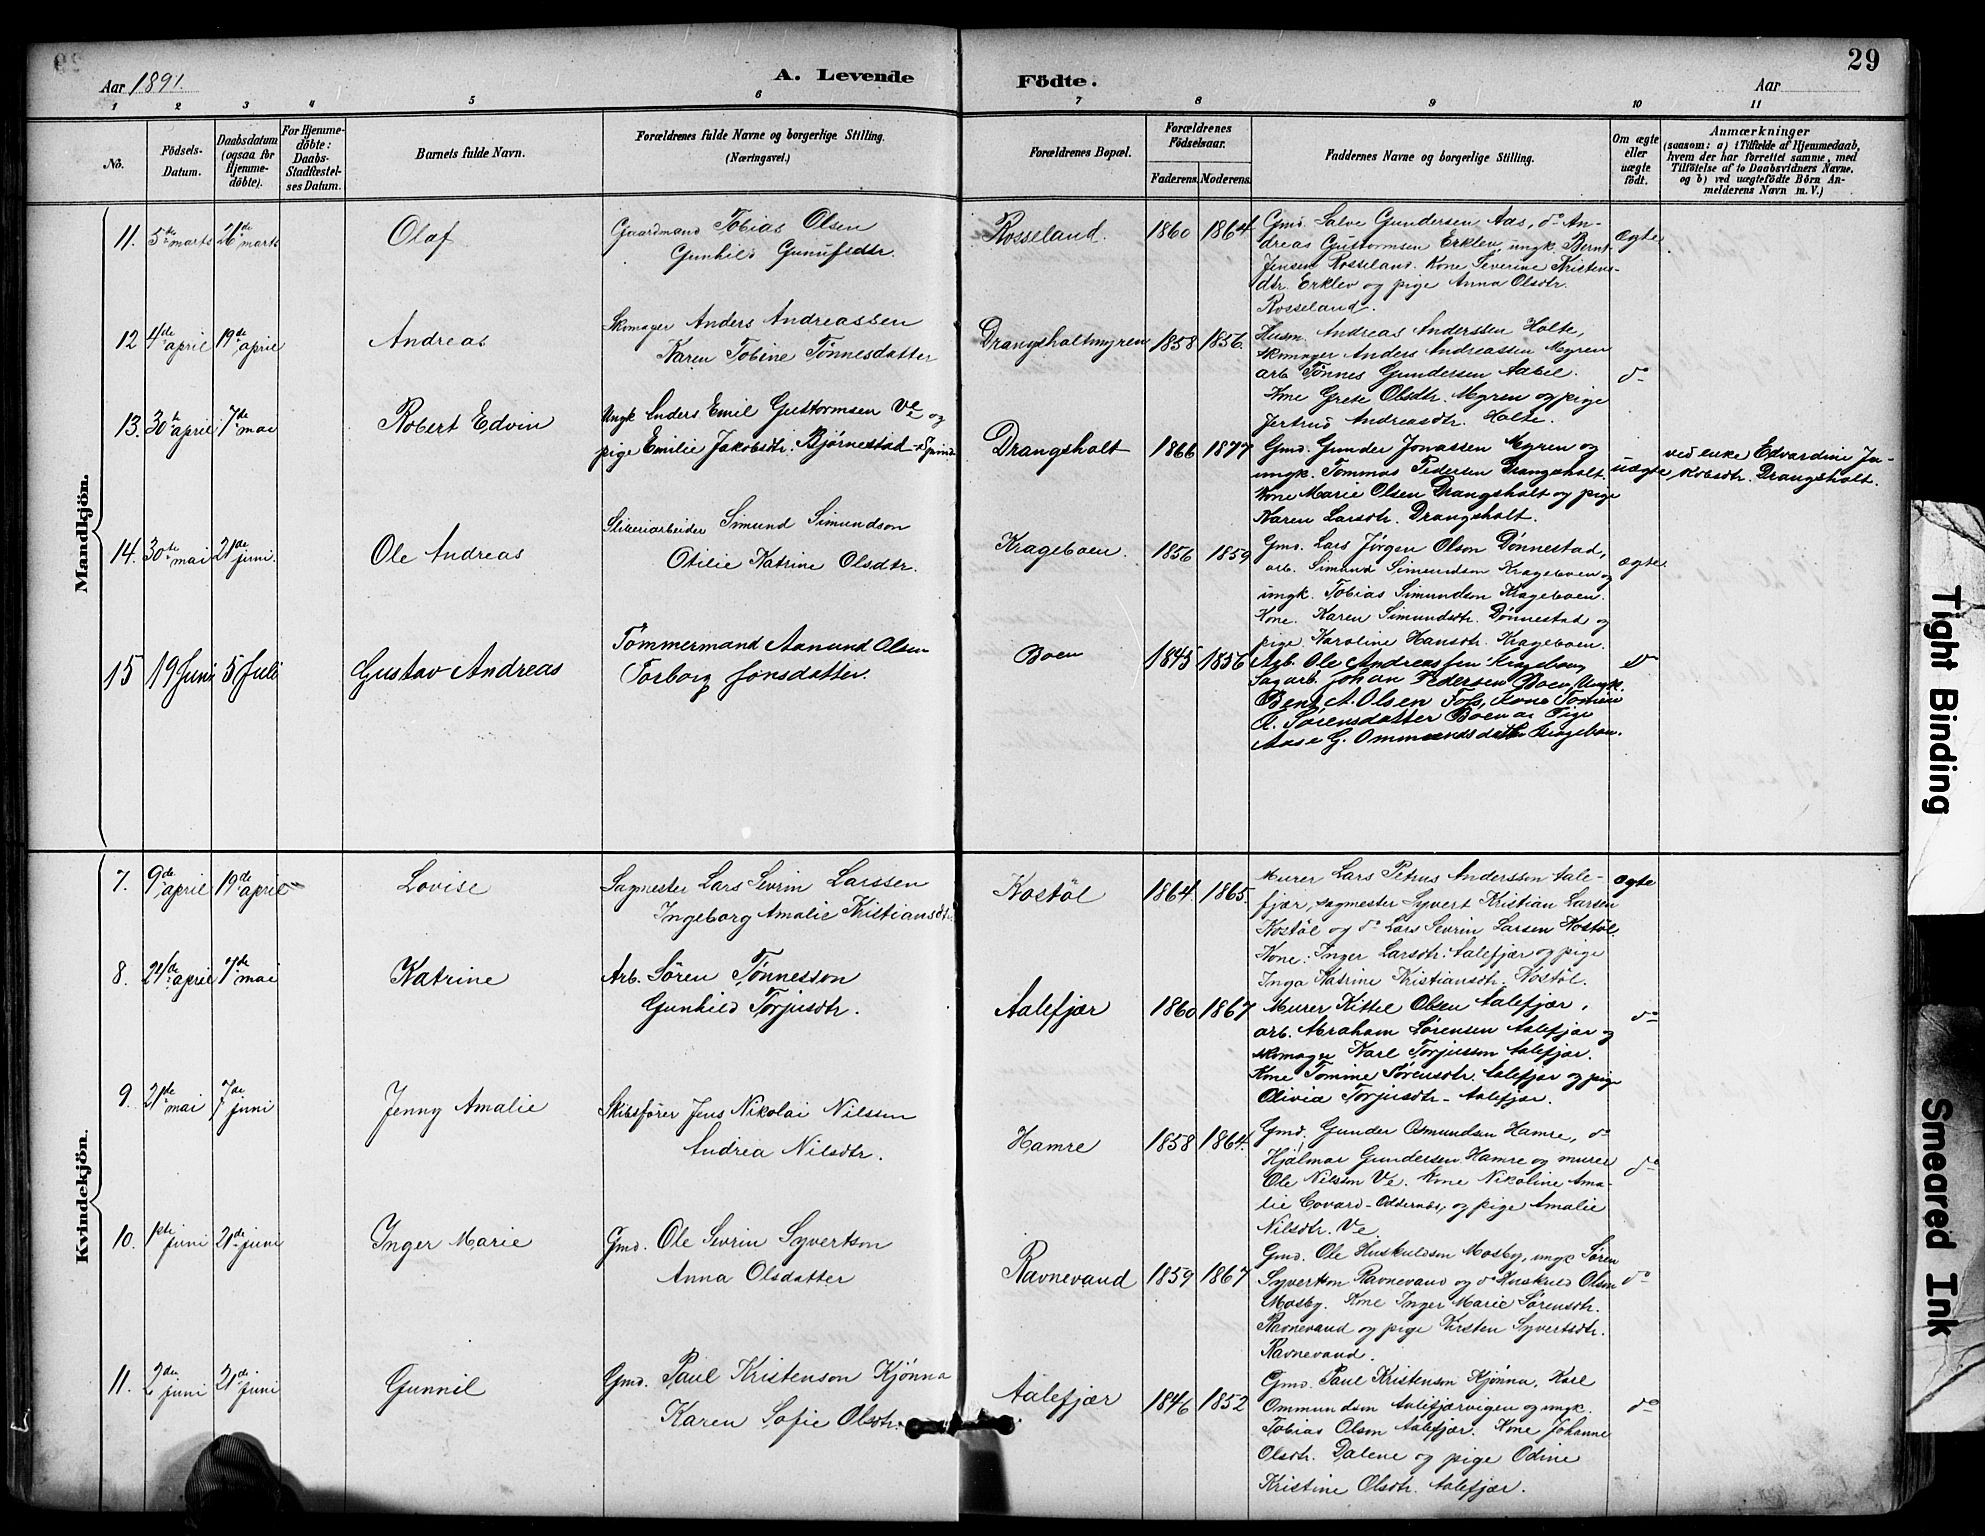 29
Aar 1891.
A. Levende
Födte.
Aar
1 2 3 4 5 6 7 8 9 10 11
No.
Födsels-
Datum.
Daabsdatum
(ogsaa for
Hjemme-
döbte).
For Hjemme-
döbte:
Daabs-
Stadfæstel-
ses Datum.
Barnets fulde Navn.
Forældrenes fulde Navne og borgerlige Stilling.
(Næringsvei.)
Forældrenes Bopæl.
Forældrenes
Födselsaar.
Faderens. Moderens.
Faddernes Navne og borgerlige Stilling.
Om ægte
eller
uægte
födt.
Anmærkninger
(saasom: a) i Tilfælde af Hjemmedaab,
hvem der har forrettet samme, med
Tilföielse af to Daabsvidners Navne.
og b) ved uægtefödte Börn An-
melderens Navn m. V.)
Mandkjön.
11. 5te marts 26de marts
Olaf
Gaardmand Tobias Olsen
Gunhild Gunufsdtr.
Rosseland.
1860 1864
Gmd. Salve Gundersen Aas, do An-
dreas Guttormsen Erklev, ungk. Bernt
Jensen Rosseland. Kone Severine Kristens-
dtr. Erklev og pige Anna Olsdtr.
Rosseland.
ægte
12 4de april 19de april
Andreas
Skomager Anders Andreassen
Karen Tobine Tønnesdatter
Drangsholtmyren
1858 1856.
Husm. Andreas Anderssen Holte,
skomager Anders Andreassen Myren
arb. Tønnes Gundersen Aabel.
Kone Grete Olsdtr. Myren og pige
Jertrud Andreasdtr. Holte.
do
13. 30te april 7de mai
Robert Edvin
Ungk Anders Emil Guttormsen Ve og
pige Emilie Jakobsdtr. Bjørnestad
Drangsholt
1866 1877
Gmd. Gunder Jonassen Myren og
ungk. Tommas Pedersen Drangsholt.
Kone Marie Olsen Drangsholt og pige
Karen Larsdtr. Drangsholt.
uægte
ved enke Edvardine Ja-
kobsdtr. Drangsholt.
14. 30te mai 21de juni.
Ole Andreas
Sliberiarbeider Simund Simundson
Otilie Katrine Olsdtr.
Krageboen.
1856 1859
Gmd. Lars Jørgen Olson Dønnestad,
arb. Simund Simundson Krageboen og
ungk. Tobias Simundsen Krageboen.
Kone. Karen Simundsdtr. Dønnestad og
pige Karoline Hansdtr. Krageboen.
ægte
15 19 Juni 5 Juli
Gustav Andreas
Tømmermand Aanund Olsen
Torborg Jonsdatter.
Boen
1845 1856
Arb. Ole Andreassen Krageboen
Sagarb. Johan Pedersen Boen, Ungk.
Bent A. Olsen Foss, Kone Tomine
K. Sørensdatter Boen og Pige
Aase G. Ommundsdatter Krageboen.
do
Kvindekjön.
7. 9de april 19de april
Lovise
Sagmester Lars Sevrin Larssen
Ingeborg Amalie Kristiansdtr.
Kostöl
1864. 1865.
Murer Lars Petrus Andersson Aale-
fjær, sagmester Syvert Kristian Larsen
Kostöl og do Lars Sevrin Larsen Kostöl.
Kone. Inger Larsdtr. Aalefjær og pige
Inga Katrine Kristiansdtr. Kostöl.
ægte
8. 24de april 7de mai
Katrine
Arb. Sören Tønnesson
Gunhild Torjusdtr.
Aalefjær
1860 1867
Murer Kittel Olsen Aalefjær,
arb. Abraham Sørensen Aalefjær og
skomager Karl Torjusson Aalefjær.
Kone Tomine Sørensdtr. Aalefjær og pige
Olivia Torjusdtr. Aalefjær.
do
9. 21de mai 7de juni
Jenny Amalie
Skibsfører Jens Nikolai Nilssen
Andrea Nilsdtr.
Hamre
1858 1864.
Gmd. Gunder Osmundsen Hamre, do
Hjalmar Gundersen Hamre og murer
Ole Nilsson Ve. Kone Nikoline Ama-
lie Covard-Oddernæs, og pige Amalie
Nilsdtr. Ve
do
10. 1ste juni 21de juni
Inger Marie
Gmd. Ole Sevrin Syvertson
Anna Olsdatter
Ravnevand
1859 1867
Gmd. Ole Huskuldsen Mosby, ungk Søren
Syvertson Ravnevand og do Huskuld Olsen
Mosby. Kone Inger Marie Sørensdtr.
Ravnevand og pige Kirsten Syvertsdtr.
Ravnevand.
do
11. 2den juni 21de juni
Gunnil
Gmd. Paul Kristenson Kjønna
Karen Sofie Olsdtr.
Aalefjær
1846 1852
Gmd. Paul Kristenson Kjønna, Karl
Ommundsen Aalefjærvigen og ungk.
Tobias Olson Aalefjær. Kone Johanne
Olsdtr. Dalene og pige Odine
Kristine Olsdtr. Aalefjær.
do
Tight Binding
Smeared Ink